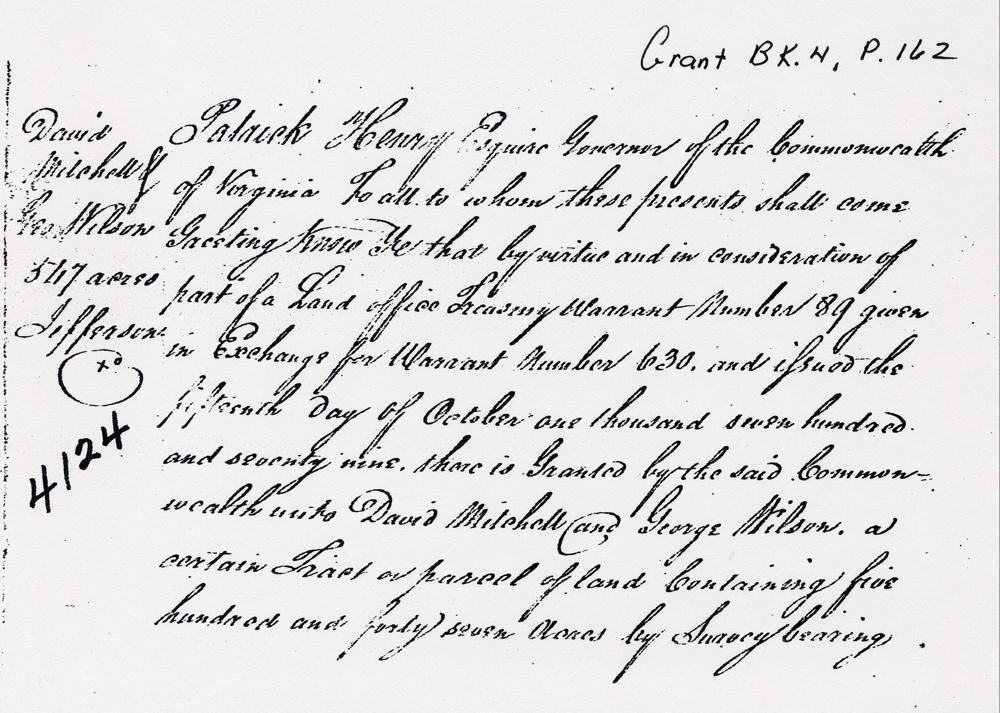 Grant BK. 4, P. 162
David
Mitchell &
Geo. Wilson
547 acres
Jefferson
xd
4124
Patrick Henry Esquire Governor of the Commonwealth
of Virginia To all to whom these presents shall come
Greeting Know Ye that by virtue and in consideration of
part of a Land office Treasury Warrant Number 89 given
in Exchange for Warrant Number 630. and issued the
fifteenth day of October one thousand seven hundred
and seventy nine. there is Granted by the said Common=
wealth unto David Mitchell and George Wilson. a
certain Tract or parcel of land Containing five
hundred and forty seven Acres by Survey bearing